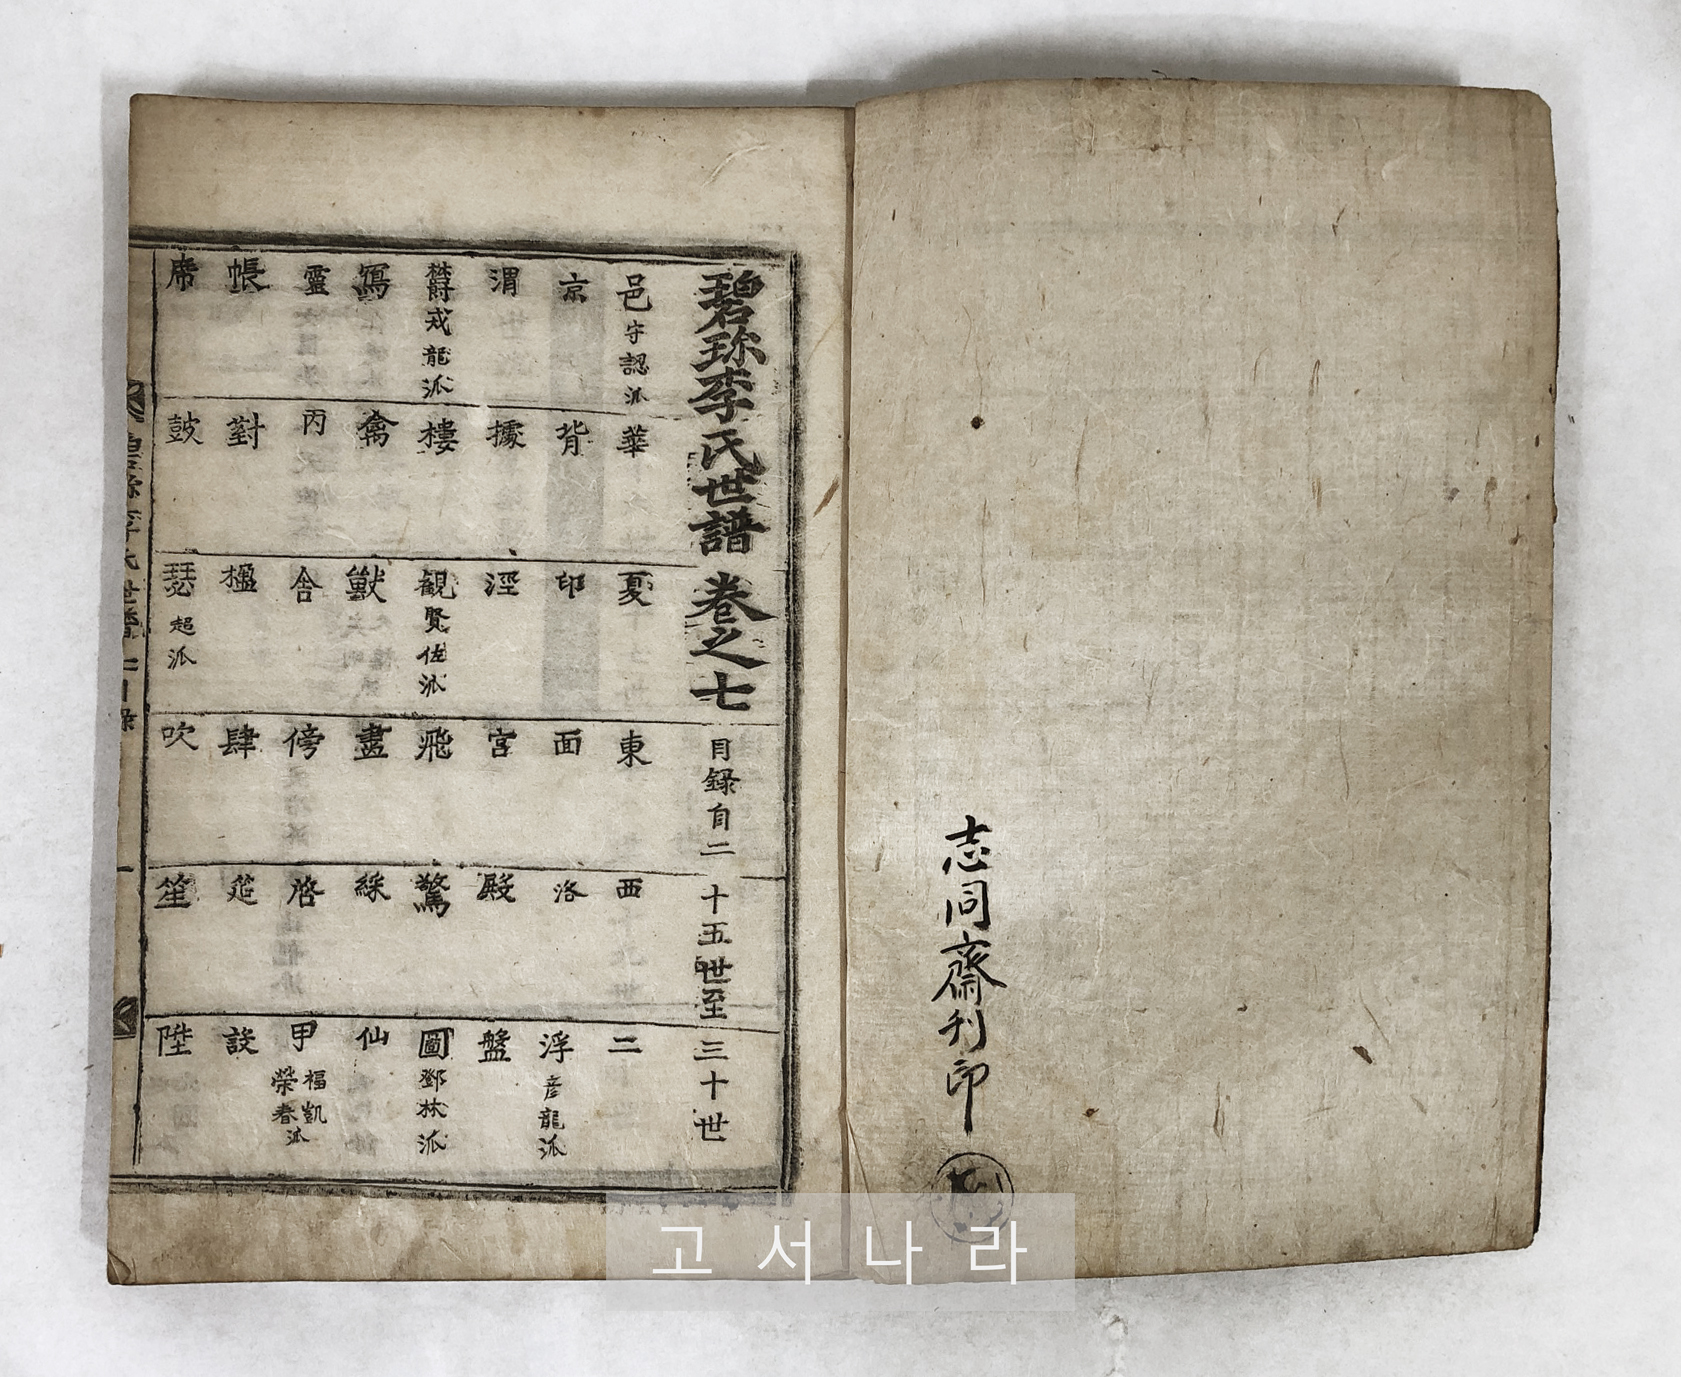 志同齋刊印
碧珍李氏世譜卷之七 目録自二十五世至三十世
邑 守認派 華 夏 東 西 二
京 背 邙 面 洛 浮 彦龍派
渭 據 涇 宮 殿 盤
欝 戎龍派 樓 観 賢佐派 飛 驚 圖 鄧林派
寫 禽 獸 畫 綵 仙
靈 丙 舎 傍 啓 甲 福凱 榮春派
帳 對 楹 肆 筵 設
席 鼓 瑟 超派 吹 笙 陞
碧珍李氏世譜 七目録 一
고서나라